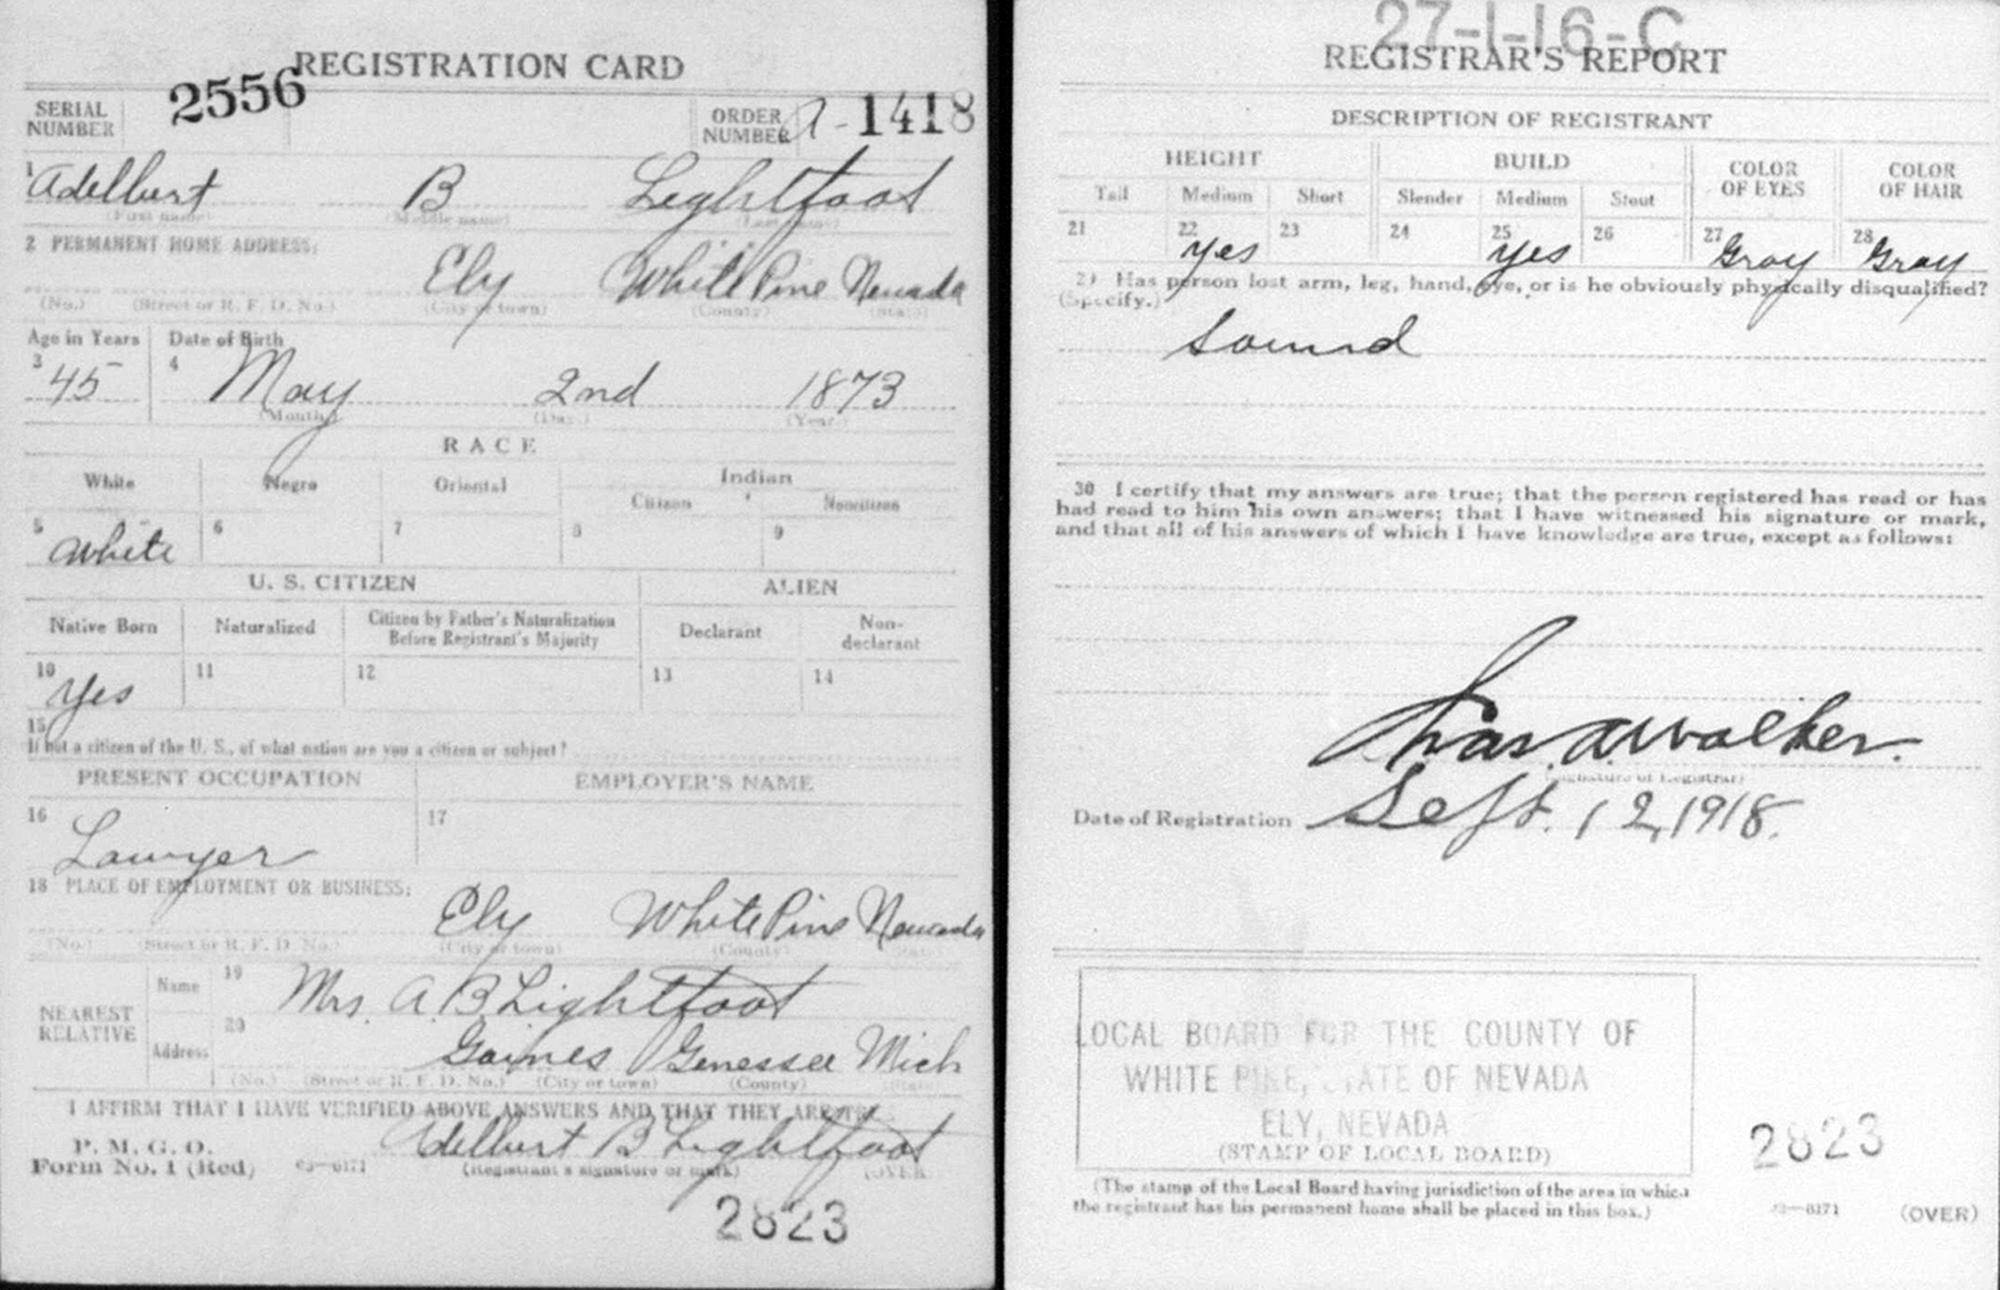 REGISTRATION CARD
SERIAL NUMBER 2556 ORDER NUMBER A-1418
1 Adelbert B Lightfoot
(First name) (Middle name) (Last name)
2 PERMANENT HOME ADDRESS:
Ely White Pine Nevada
(No.) (Street or R. F. D. No.) (City or town) (County) (State)
Age in Years Date of Birth
3 45 4 May 2nd 1873
(Month) (Day) (Year)
RACE
White Negro Oriental Indian
Citizen Noncitizen
5 White 6 7 8 9
U. S. CITIZEN ALIEN
Native Born Naturalized Citizen by Father's Naturalization Before Registrant's Majority Declarant Non-declarant
10 Yes 11 12 13 14
15
If not a citizen of the U. S., of what nation are you a citizen or subject?
PRESENT OCCUPATION EMPLOYER'S NAME
16 Lawyer 17
18 PLACE OF EMPLOYMENT OR BUSINESS:
Ely White Pine Nevada
(No.) (Street or R. F. D. No.) (City or town) (County) (State)
NEAREST RELATIVE Name 19 Mrs. A. B Lightfoot
Address 20 Gaines Genessee Mich
(No.) (Street or R. F. D. No.) (City or town) (County) (State)
I AFFIRM THAT I HAVE VERIFIED ABOVE ANSWERS AND THAT THEY ARE TRUE
P. M. G. O.
Form No. 1 (Red) 03—6171 Adelbert B Lightfoot
(Registrant's signature or mark) (OVER)
2823
27-1-16-C
REGISTRAR'S REPORT
DESCRIPTION OF REGISTRANT
HEIGHT BUILD COLOR OF EYES COLOR OF HAIR
Tall Medium Short Slender Medium Stout
21 22 Yes 23 24 25 Yes 26 27 Gray 28 Gray
29 Has person lost arm, leg, hand, eye, or is he obviously physically disqualified?
(Specify.)
Sound
30 I certify that my answers are true; that the person registered has read or has
had read to him his own answers; that I have witnessed his signature or mark,
and that all of his answers of which I have knowledge are true, except as follows:
Chas. A. Walker.
(Signature of Registrar)
Date of Registration Sept. 12, 1918.
LOCAL BOARD FOR THE COUNTY OF
WHITE PINE, STATE OF NEVADA
ELY, NEVADA
(STAMP OF LOCAL BOARD)
2823
(The stamp of the Local Board having jurisdiction of the area in which
the registrant has his permanent home shall be placed in this box.)
03—6171 (OVER)